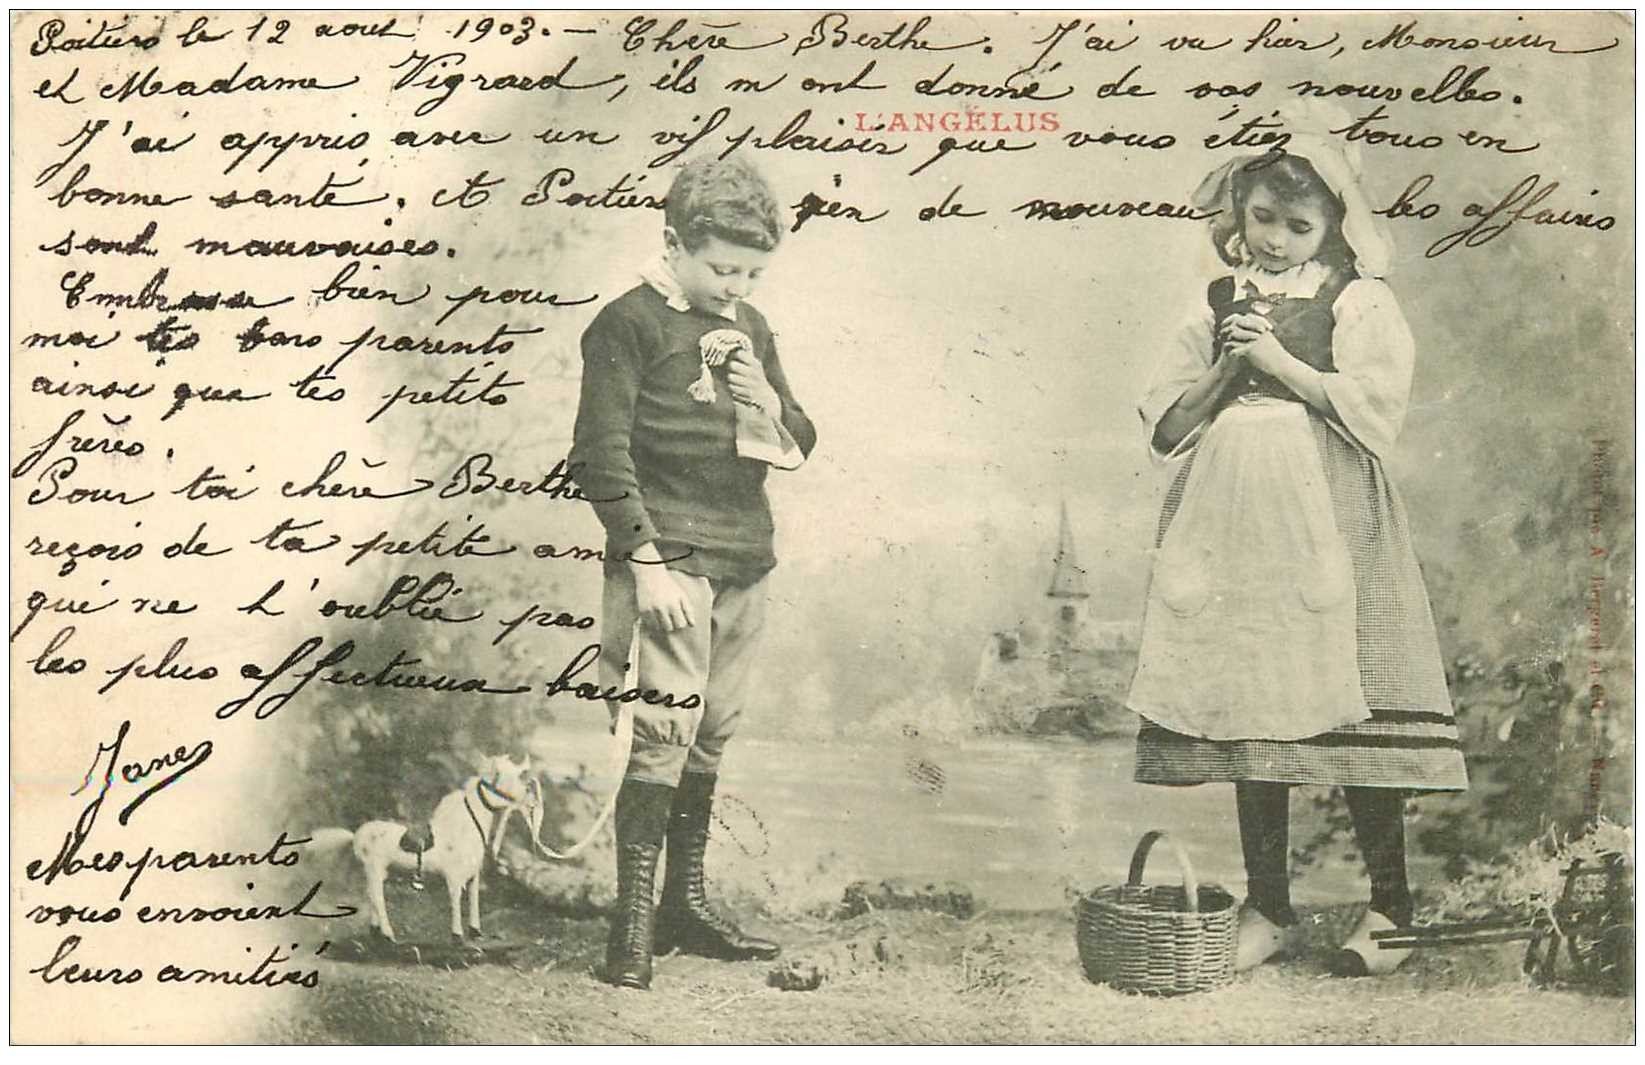 Poitiers le 12 aout 1903. — Chère Berthe. J'ai vu hier, Monsieur
et Madame Vigrard, ils m ont donné de vos nouvelles.
L'ANGÉLUS
J'ai appris avec un vif plaisir que vous étiez tous en
bonne santé. et Poitiers rien de nouveau les affaires
sont mauvaises.
Embrasse bien pour
moi tes bons parents
ainsi que tes petits
frères.
Pour toi chère Berthe
reçois de ta petite amie
qui ne t'oublie pas
les plus affectueux baisers
Jane
Mes parents
vous envoient
leurs amitiés
A. Bergeret et Cie. — Nancy